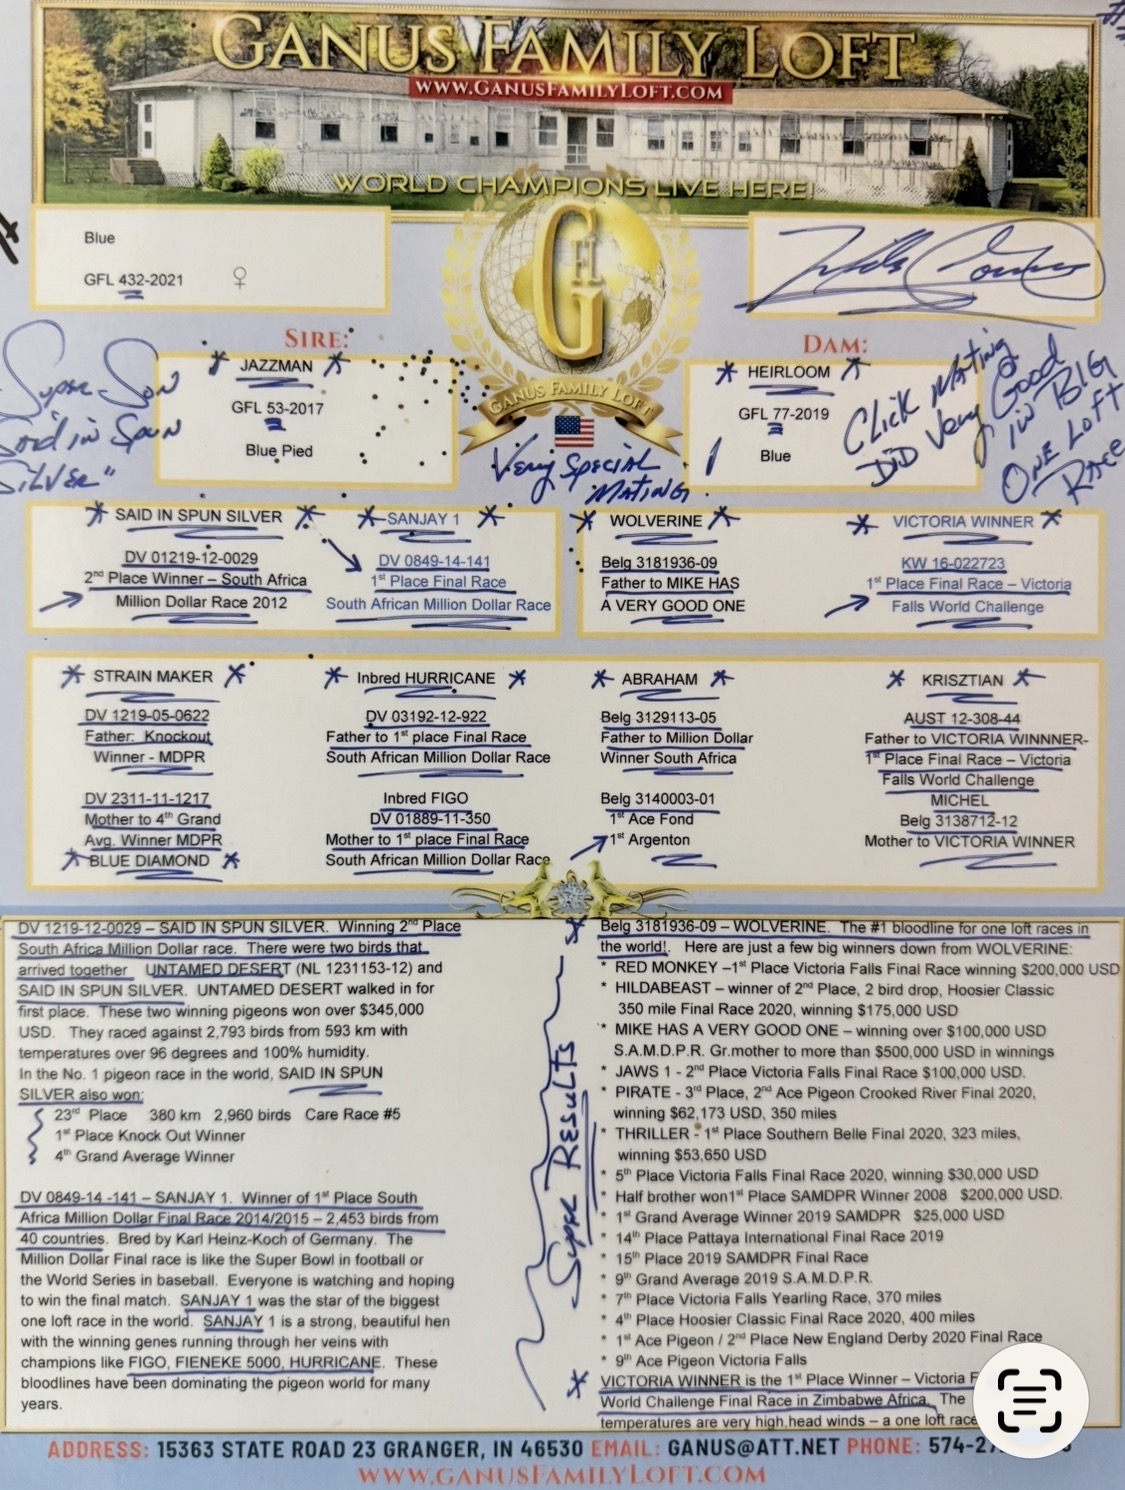 GANUS FAMILY LOFT
WWW.GANUSFAMILYLOFT.COM
WORLD CHAMPIONS LIVE HERE!
Blue
GFL 432-2021 ♀
GFL
GANUS FAMILY LOFT
SIRE:
* JAZZMAN *
GFL 53-2017
Blue Pied
Super Son
Said in Spun
SILVER"
Very SPECIAL
MATING!
DAM:
* HEIRLOOM *
GFL 77-2019
Blue
Click Mating
DiD Very Good
in BIG
ONE LOFT
RACE
* SAID IN SPUN SILVER *
DV 01219-12-0029
2nd Place Winner – South Africa
Million Dollar Race 2012
* SANJAY 1 *
DV 0849-14-141
1st Place Final Race
South African Million Dollar Race
* WOLVERINE *
Belg 3181936-09
Father to MIKE HAS
A VERY GOOD ONE
* VICTORIA WINNER *
KW 16-022723
1st Place Final Race – Victoria
Falls World Challenge
* STRAIN MAKER *
DV 1219-05-0622
Father: Knockout
Winner - MDPR
DV 2311-11-1217
Mother to 4th Grand
Avg. Winner MDPR
* BLUE DIAMOND *
* Inbred HURRICANE *
DV 03192-12-922
Father to 1st place Final Race
South African Million Dollar Race
Inbred FIGO
DV 01889-11-350
Mother to 1st place Final Race
South African Million Dollar Race
* ABRAHAM *
Belg 3129113-05
Father to Million Dollar
Winner South Africa
Belg 3140003-01
1st Ace Fond
1st Argenton
* KRISZTIAN *
AUST 12-308-44
Father to VICTORIA WINNNER-
1st Place Final Race – Victoria
Falls World Challenge
MICHEL
Belg 3138712-12
Mother to VICTORIA WINNER
DV 1219-12-0029 – SAID IN SPUN SILVER. Winning 2nd Place
South Africa Million Dollar race. There were two birds that
arrived together UNTAMED DESERT (NL 1231153-12) and
SAID IN SPUN SILVER. UNTAMED DESERT walked in for
first place. These two winning pigeons won over $345,000
USD. They raced against 2,793 birds from 593 km with
temperatures over 96 degrees and 100% humidity.
In the No. 1 pigeon race in the world, SAID IN SPUN
SILVER also won:
23rd Place 380 km 2,960 birds Care Race #5
1st Place Knock Out Winner
4th Grand Average Winner
DV 0849-14 -141 – SANJAY 1. Winner of 1st Place South
Africa Million Dollar Final Race 2014/2015 – 2,453 birds from
40 countries. Bred by Karl Heinz-Koch of Germany. The
Million Dollar Final race is like the Super Bowl in football or
the World Series in baseball. Everyone is watching and hoping
to win the final match. SANJAY 1 was the star of the biggest
one loft race in the world. SANJAY 1 is a strong, beautiful hen
with the winning genes running through her veins with
champions like FIGO, FIENEKE 5000, HURRICANE. These
bloodlines have been dominating the pigeon world for many
years.
* Super Results *
Belg 3181936-09 – WOLVERINE. The #1 bloodline for one loft races in
the world!. Here are just a few big winners down from WOLVERINE:
* RED MONKEY –1st Place Victoria Falls Final Race winning $200,000 USD
* HILDABEAST – winner of 2nd Place, 2 bird drop, Hoosier Classic
350 mile Final Race 2020, winning $175,000 USD
* MIKE HAS A VERY GOOD ONE – winning over $100,000 USD
S.A.M.D.P.R. Gr.mother to more than $500,000 USD in winnings
* JAWS 1 - 2nd Place Victoria Falls Final Race $100,000 USD.
* PIRATE - 3rd Place, 2nd Ace Pigeon Crooked River Final 2020,
winning $62,173 USD, 350 miles
* THRILLER - 1st Place Southern Belle Final 2020, 323 miles,
winning $53,650 USD
* 5th Place Victoria Falls Final Race 2020, winning $30,000 USD
* Half brother won1st Place SAMDPR Winner 2008 $200,000 USD.
* 1st Grand Average Winner 2019 SAMDPR $25,000 USD
* 14th Place Pattaya International Final Race 2019
* 15th Place 2019 SAMDPR Final Race
* 9th Grand Average 2019 S.A.M.D.P.R.
* 7th Place Victoria Falls Yearling Race, 370 miles
* 4th Place Hoosier Classic Final Race 2020, 400 miles
* 1st Ace Pigeon / 2nd Place New England Derby 2020 Final Race
* 9th Ace Pigeon Victoria Falls
VICTORIA WINNER is the 1st Place Winner – Victoria F
World Challenge Final Race in Zimbabwe Africa. The
temperatures are very high,head winds – a one loft race
ADDRESS: 15363 STATE ROAD 23 GRANGER, IN 46530 EMAIL: GANUS@ATT.NET PHONE: 574-2
WWW.GANUSFAMILYLOFT.COM